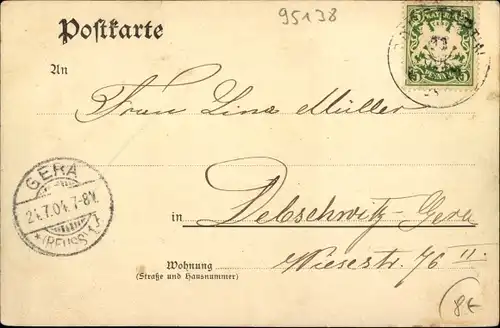 95138
Postkarte
An
Frau Lina Müller
GERA
24.7.04. 7-8V.
* (REUSS) 1.)
in Debschwitz-Gera
Wohnung
(Straße und Hausnummer)
Wiesestr. 76 II.
8€